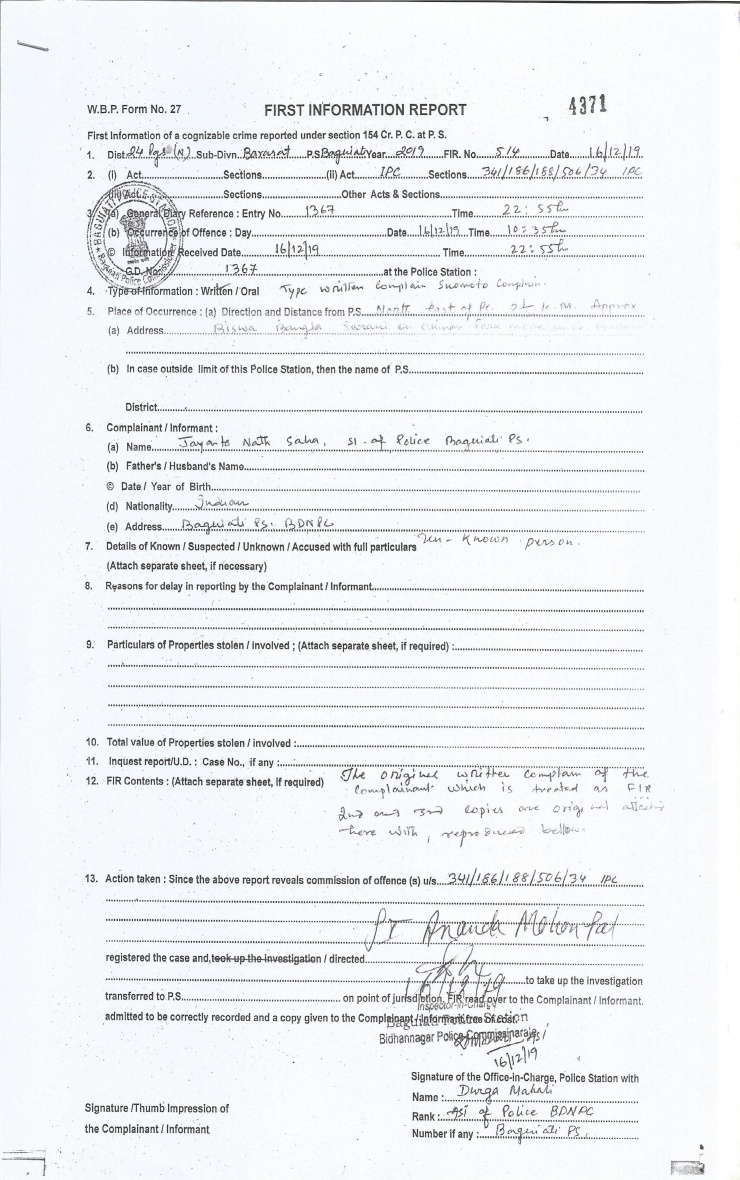 4371
W.B.P. Form No. 27 FIRST INFORMATION REPORT
First Information of a cognizable crime reported under section 154 Cr. P. C. at P. S.
1. Dist. 24 Pgs (N) Sub-Divn. Barasat P.S. Baguiati Year 2019 FIR. No. 514 Date 16/12/19
2. (i) Act Sections (ii) Act IPC Sections 341/186/188/506/34 IPC
(iii) Act Sections Other Acts & Sections
3. (a) General Diary Reference : Entry No. 1367 Time 22:55 hr
(b) Occurrence of Offence : Day Date 16/12/19 Time 10:35 hr
© Information Received Date 16/12/19 Time 22:55 hr
G.D. No. 1367 at the Police Station :
4. Type of Information : Written / Oral Type written Complain Suomoto Complain.
5. Place of Occurrence : (a) Direction and Distance from P.S. North East of Ps. Approx
(a) Address Biswa Bangla Sarani
(b) In case outside limit of this Police Station, then the name of P.S.
District
6. Complainant / Informant :
(a) Name Jayanta Nath Saha, SI of Police Baguiati Ps.
(b) Father's / Husband's Name
© Date / Year of Birth
(d) Nationality Indian
(e) Address Baguiati Ps. BDNPC
7. Details of Known / Suspected / Unknown / Accused with full particulars Un-Known person.
(Attach separate sheet, if necessary)
8. Reasons for delay in reporting by the Complainant / Informant
9. Particulars of Properties stolen / involved ; (Attach separate sheet, if required) :
10. Total value of Properties stolen / involved :
11. Inquest report/U.D. : Case No., if any :
12. FIR Contents : (Attach separate sheet, if required) The original written complain of the
Complainant which is treated as FIR
2nd and 3rd copies are original
here with, reproduced bellow.
13. Action taken : Since the above report reveals commission of offence (s) u/s. 341/186/188/506/34 IPC
Ananda Mohon Pal
registered the case and, took up the investigation / directed
16/12/19 to take up the investigation
transferred to P.S. on point of jurisdiction. FIR read over to the Complainant / Informant.
Inspector-in-Charge
admitted to be correctly recorded and a copy given to the Complainant / Informant free of cost.
Baguiati Police Station
Bidhannagar Police Commissionerate
16/12/19
Signature of the Office-in-Charge, Police Station with
Name : Durga Mahali
Signature /Thumb Impression of
Rank : ASI of Police BDNPC
the Complainant / Informant
Number if any : Baguiati Ps.